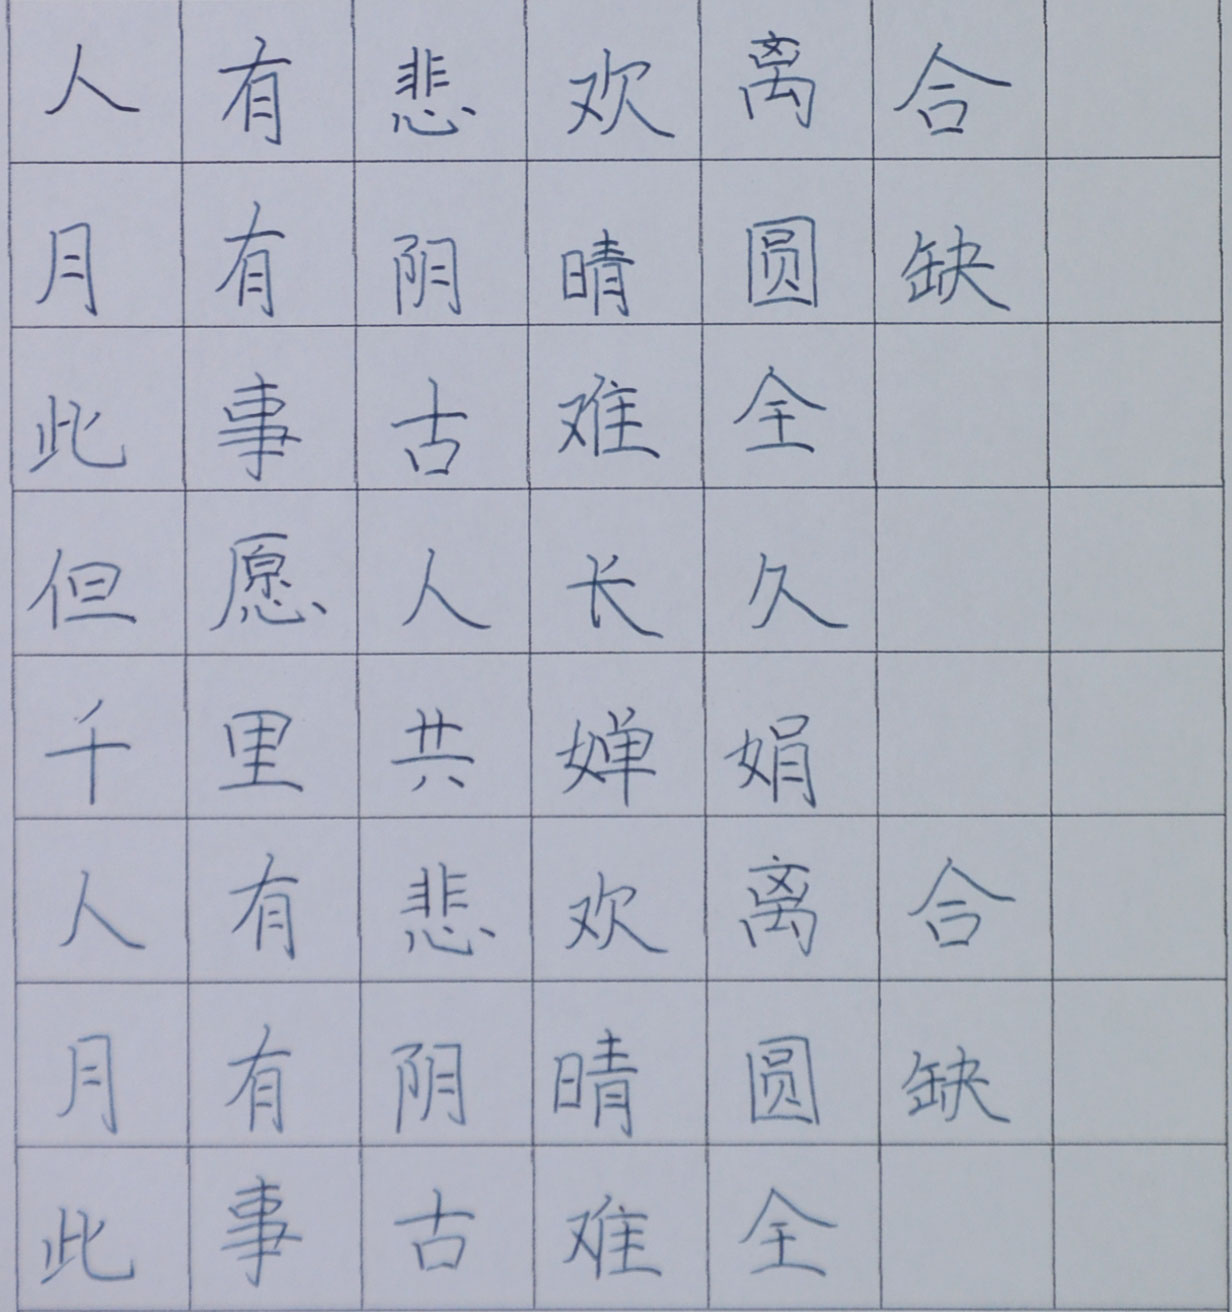 人有悲欢离合
月有阴晴圆缺
此事古难全
但愿人长久
千里共婵娟
人有悲欢离合
月有阴晴圆缺
此事古难全